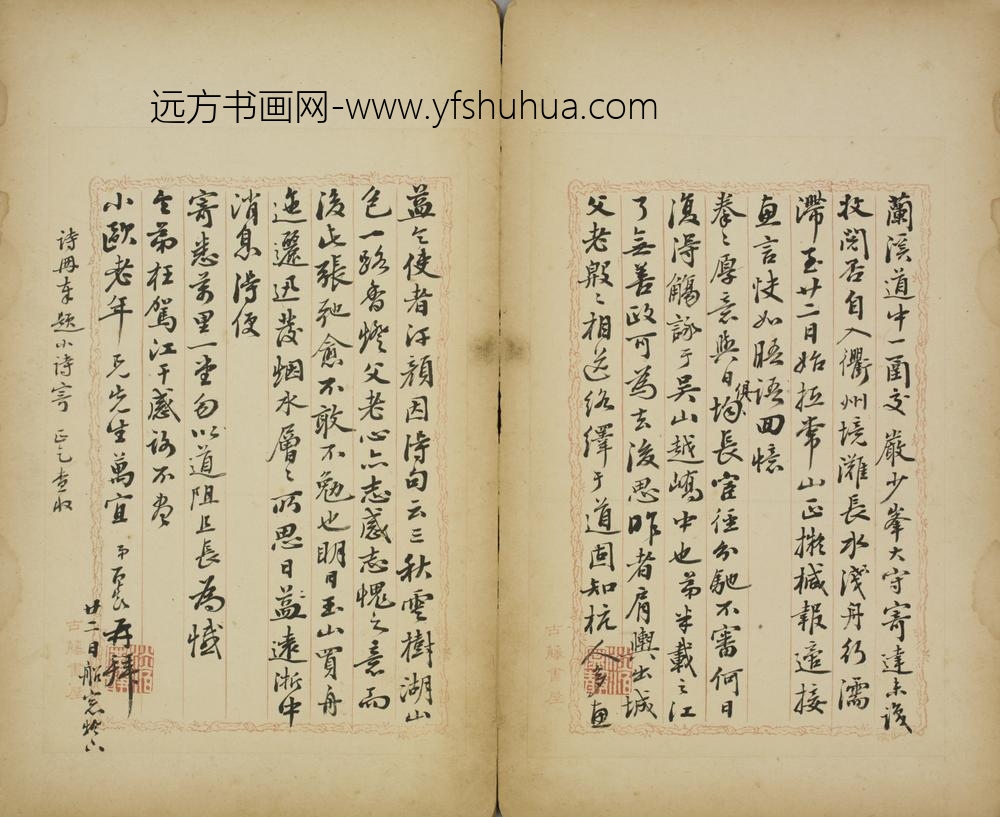 远方书画网-www.yfshuhua.com
蘭溪道中一函交嚴少峯大守寄達未識
投閱否自入衢州境灘長水淺舟行濡
滯至廿二日始抵常山正擬械報適接
惠言快如晤語回憶
拳〻厚意與日俱長宦徑分馳不審何日
復得觴詠于吳山越嶠中也弟半載之江
了無善政可為去後思昨者肩輿出城
父老殷〻相送絡繹于道固知杭人多惠
益令使者汗顏因詩句云三秋雲樹湖山
色一路香燈父老心亦志感志愧之意而
後此張弛愈不敢不勉也明日玉山買舟
迤邐迅發烟水層〻所思日益遠浙中
消息得便
寄悉萬里一堂勿以道阻且長為憾
令弟枉駕江干感謝不盡
小歐老年兄先生萬宜 弟再拜
廿二日船窓燈下
詩冊奉題小詩寄正乞查收
古藤書屋
古藤書屋